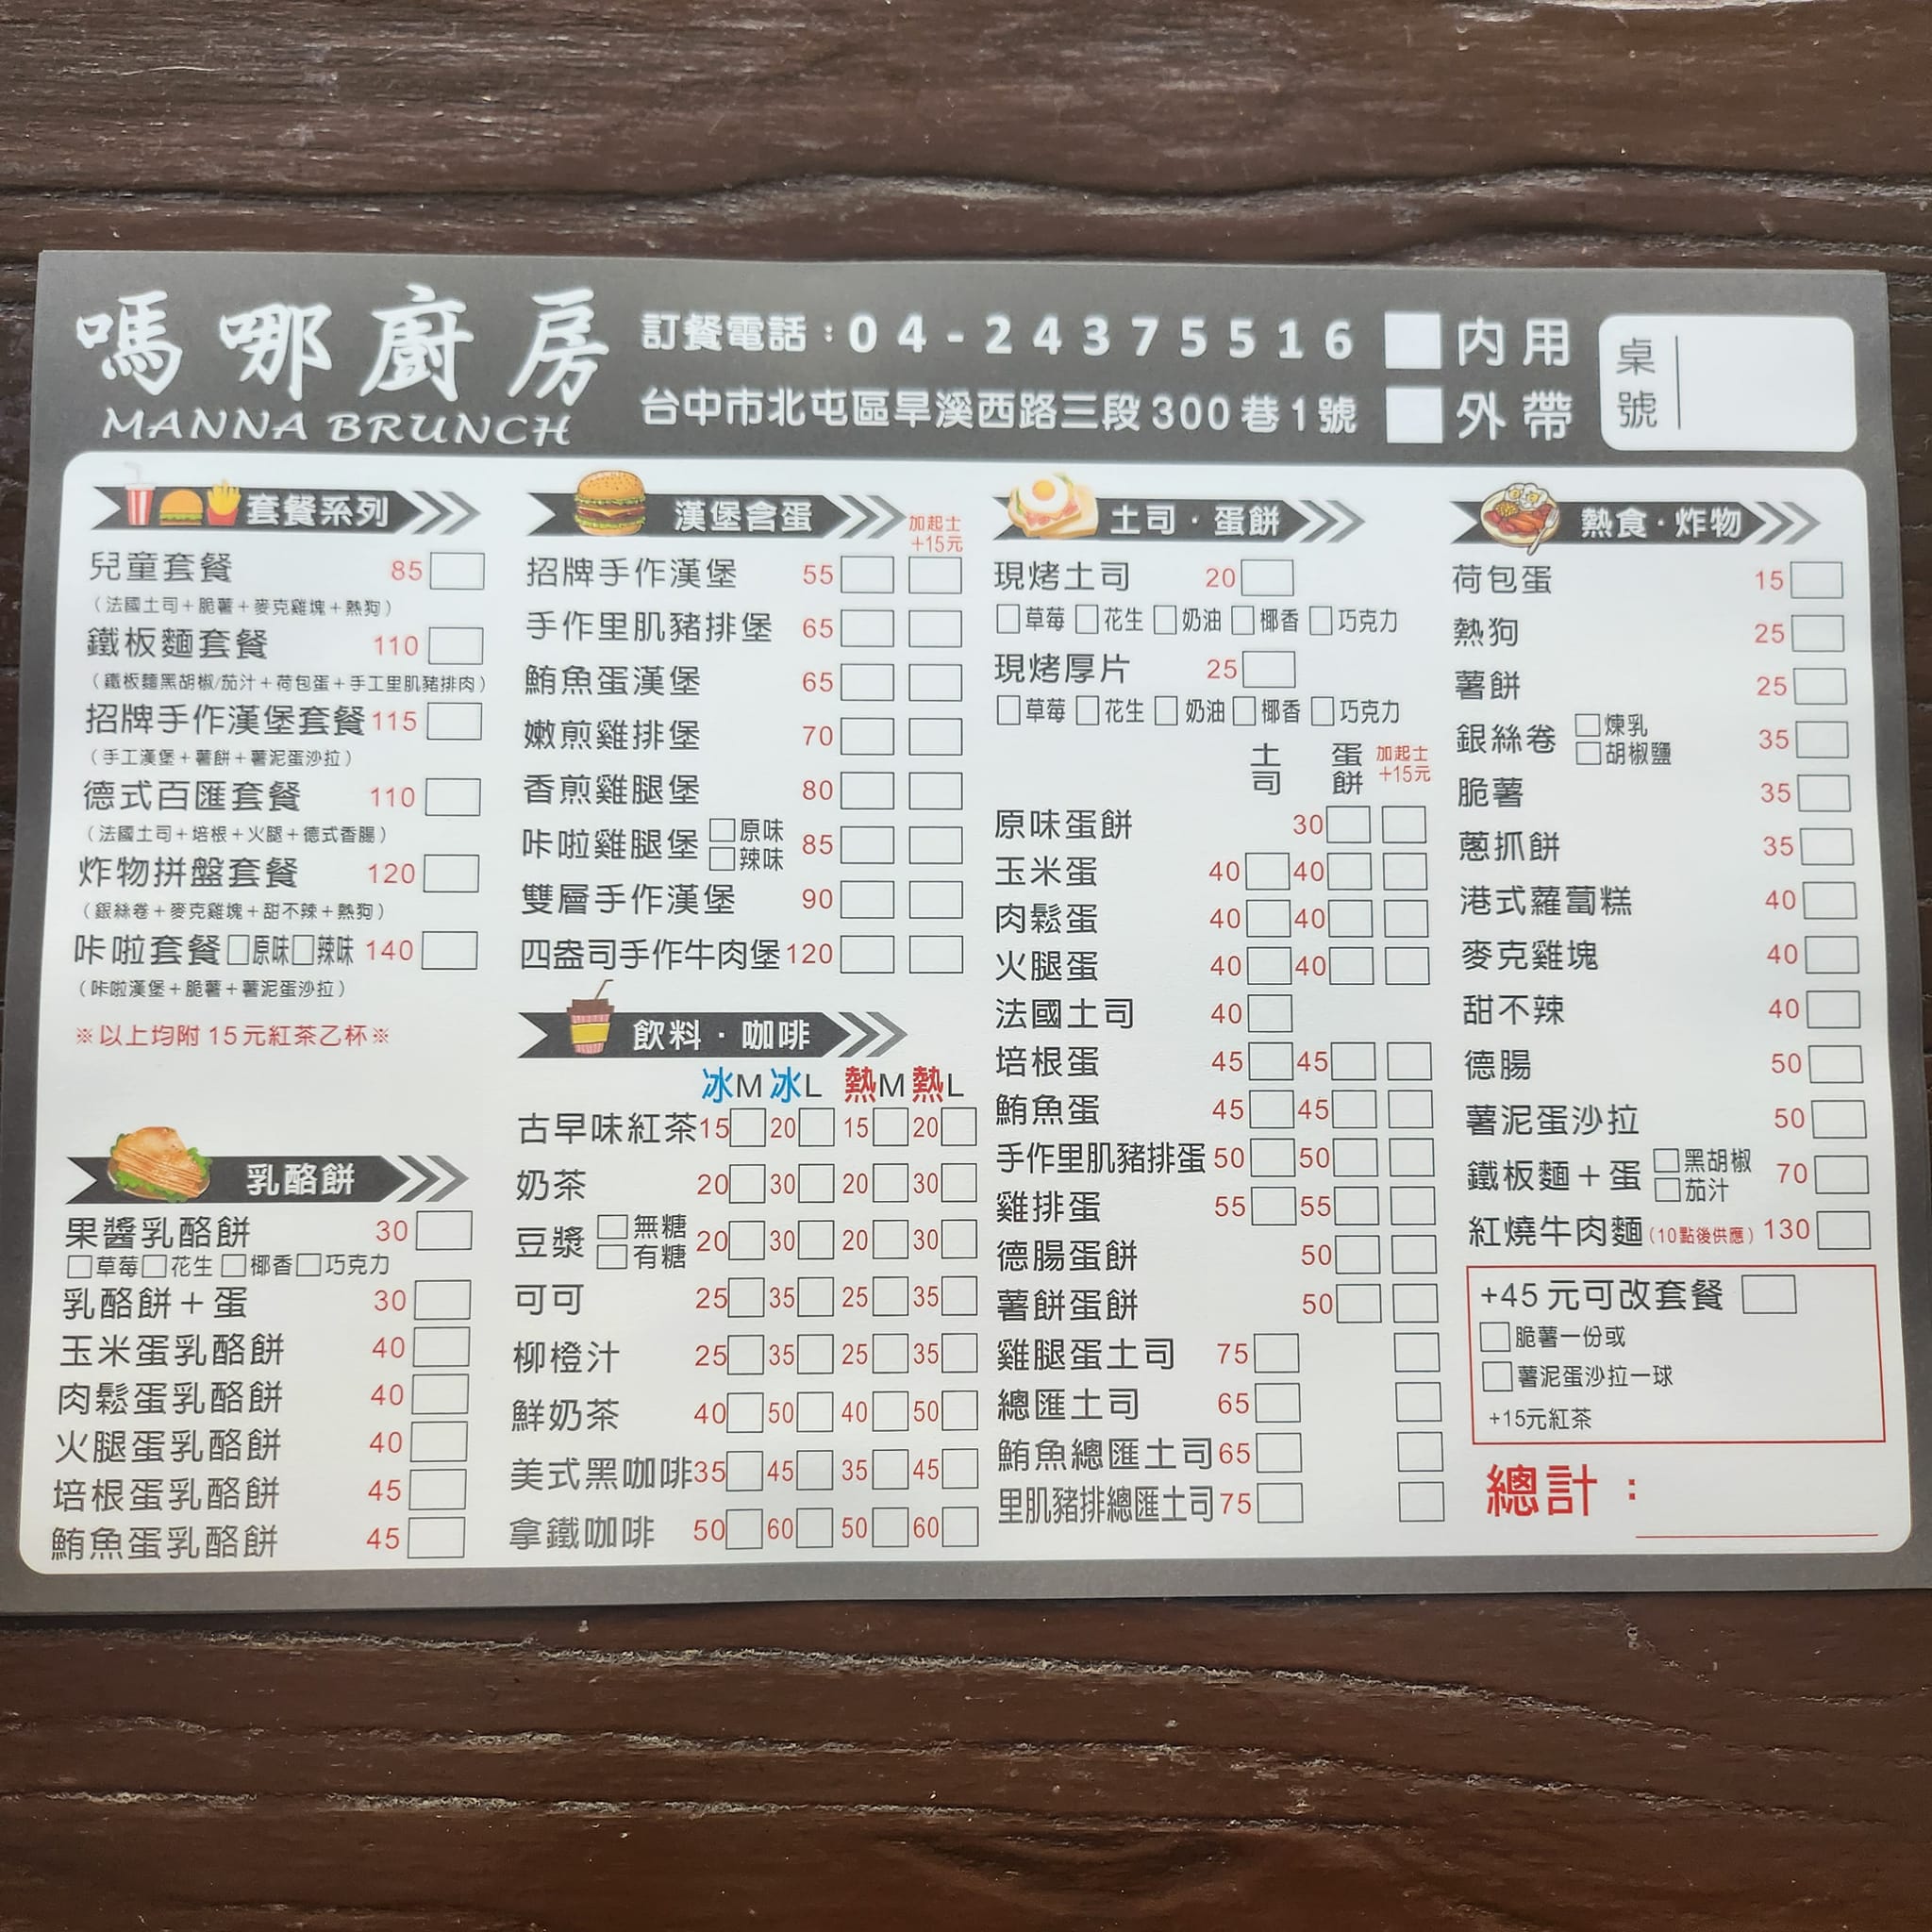 嗎哪廚房
MANNA BRUNCH
訂餐電話：04-24375516
台中市北屯區旱溪西路三段300巷1號
內用
外帶
桌號
套餐系列
兒童套餐 85
（法國土司＋脆薯＋麥克雞塊＋熱狗）
鐵板麵套餐 110
（鐵板麵黑胡椒/茄汁＋荷包蛋＋手工里肌豬排肉）
招牌手作漢堡套餐 115
（手工漢堡＋薯餅＋薯泥蛋沙拉）
德式百匯套餐 110
（法國土司＋培根＋火腿＋德式香腸）
炸物拼盤套餐 120
（銀絲卷＋麥克雞塊＋甜不辣＋熱狗）
咔啦套餐 □原味□辣味 140
（咔啦漢堡＋脆薯＋薯泥蛋沙拉）
※以上均附15元紅茶乙杯※
乳酪餅
果醬乳酪餅 30
□草莓□花生□椰香□巧克力
乳酪餅＋蛋 30
玉米蛋乳酪餅 40
肉鬆蛋乳酪餅 40
火腿蛋乳酪餅 40
培根蛋乳酪餅 45
鮪魚蛋乳酪餅 45
漢堡含蛋 加起士+15元
招牌手作漢堡 55
手作里肌豬排堡 65
鮪魚蛋漢堡 65
嫩煎雞排堡 70
香煎雞腿堡 80
咔啦雞腿堡 □原味 □辣味 85
雙層手作漢堡 90
四盎司手作牛肉堡 120
飲料・咖啡
冰M 冰L 熱M 熱L
古早味紅茶 15 20 15 20
奶茶 20 30 20 30
豆漿 □無糖 □有糖 20 30 20 30
可可 25 35 25 35
柳橙汁 25 35 25 35
鮮奶茶 40 50 40 50
美式黑咖啡 35 45 35 45
拿鐵咖啡 50 60 50 60
土司・蛋餅
現烤土司 20
□草莓 □花生 □奶油 □椰香 □巧克力
現烤厚片 25
□草莓 □花生 □奶油 □椰香 □巧克力
土司 蛋餅 加起士+15元
原味蛋餅 30
玉米蛋 40 40
肉鬆蛋 40 40
火腿蛋 40 40
法國土司 40
培根蛋 45 45
鮪魚蛋 45 45
手作里肌豬排蛋 50 50
雞排蛋 55 55
德腸蛋餅 50
薯餅蛋餅 50
雞腿蛋土司 75
總匯土司 65
鮪魚總匯土司 65
里肌豬排總匯土司 75
熱食・炸物
荷包蛋 15
熱狗 25
薯餅 25
銀絲卷 □煉乳 □胡椒鹽 35
脆薯 35
蔥抓餅 35
港式蘿蔔糕 40
麥克雞塊 40
甜不辣 40
德腸 50
薯泥蛋沙拉 50
鐵板麵＋蛋 □黑胡椒 □茄汁 70
紅燒牛肉麵(10點後供應) 130
+45元可改套餐
□脆薯一份或
□薯泥蛋沙拉一球
+15元紅茶
總計：